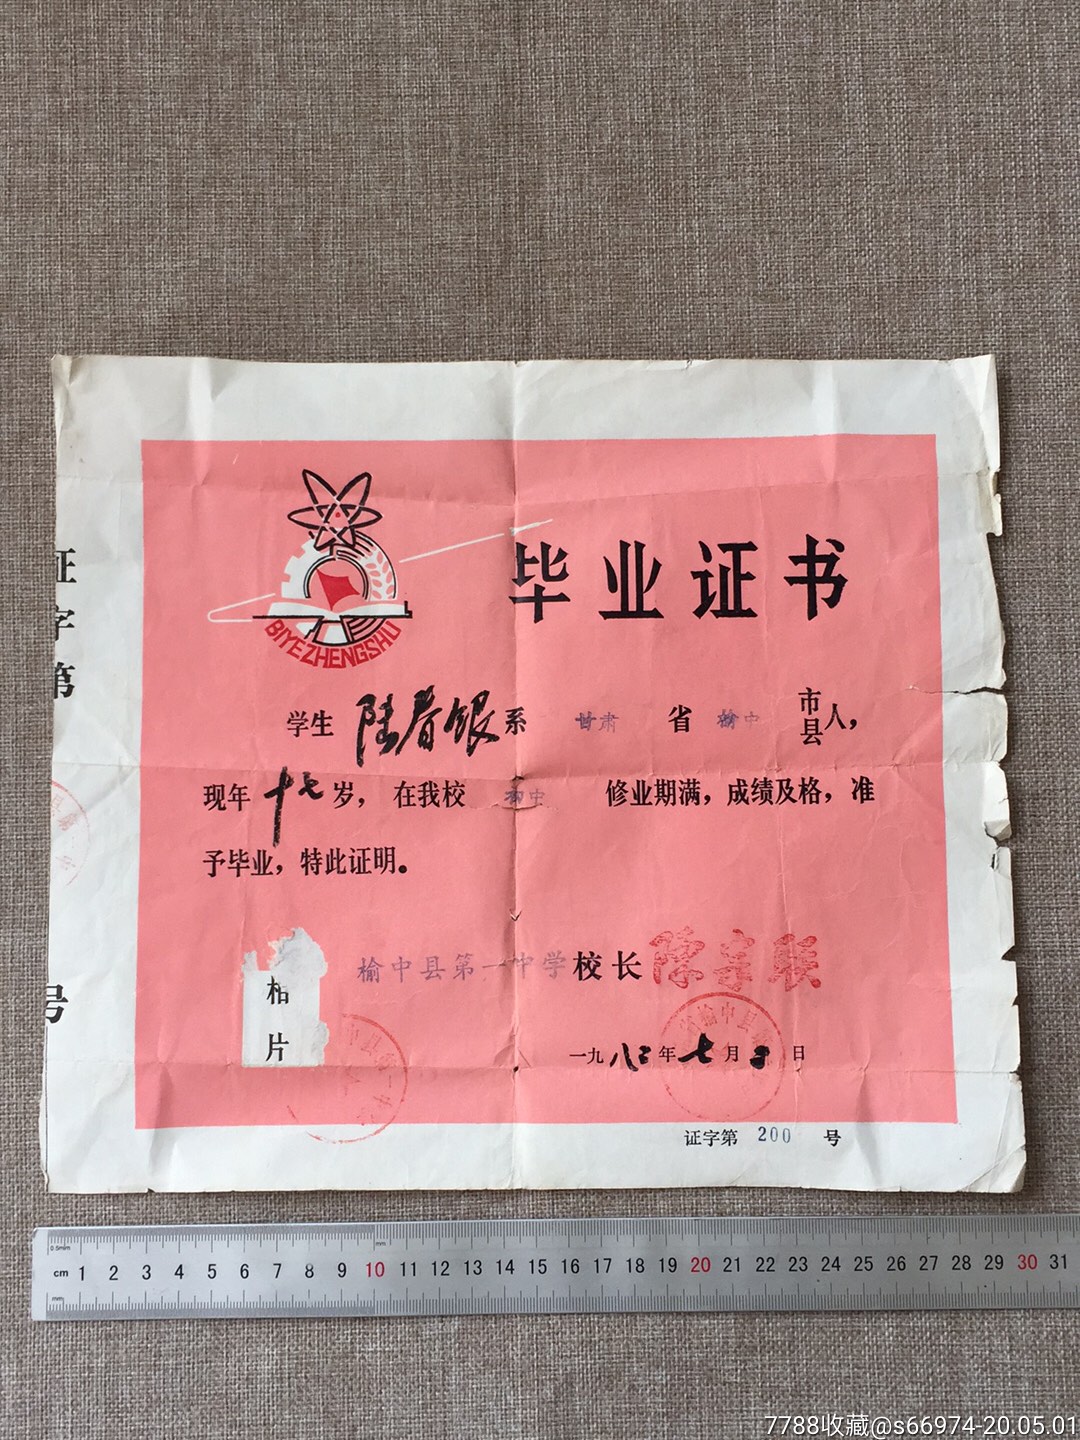 毕业证书
BIYEZHENGSHU
学生 陆春银 系 甘肃 省 榆中 市县 人，
现年 十七 岁，在我校 初中 修业期满，成绩及格，准
予毕业，特此证明。
榆中县第一中学 校长
相
片
一九八二年七月 日
证字第 200 号
证
字
第
号
0.5mm mm
cm 1 2 3 4 5 6 7 8 9 10 11 12 13 14 15 16 17 18 19 20 21 22 23 24 25 26 27 28 29 30 31
mm
7788收藏@s66974-20.05.01